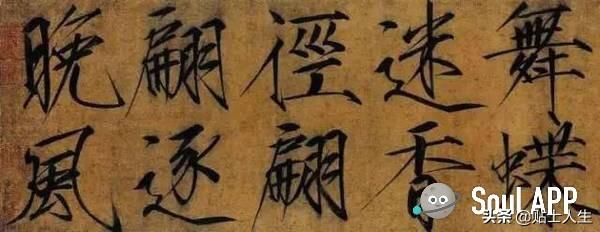 舞蝶
迷香
徑翩
翩逐
晚風
Soul APP
头条 @贴士人生